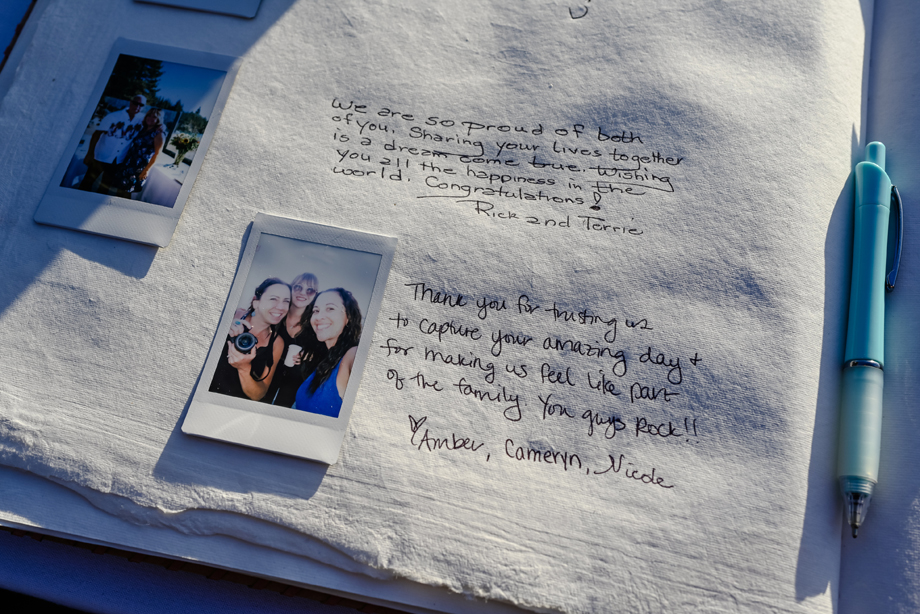 We are so proud of both
of you. Sharing your lives together
is a dream come true. Wishing
you all the happiness in the
world. Congratulations!
Rick and Terrie
Thank you for trusting us
to capture your amazing day +
for making us feel like part
of the family You guys Rock!!
♡Amber, Cameryn, Nicole